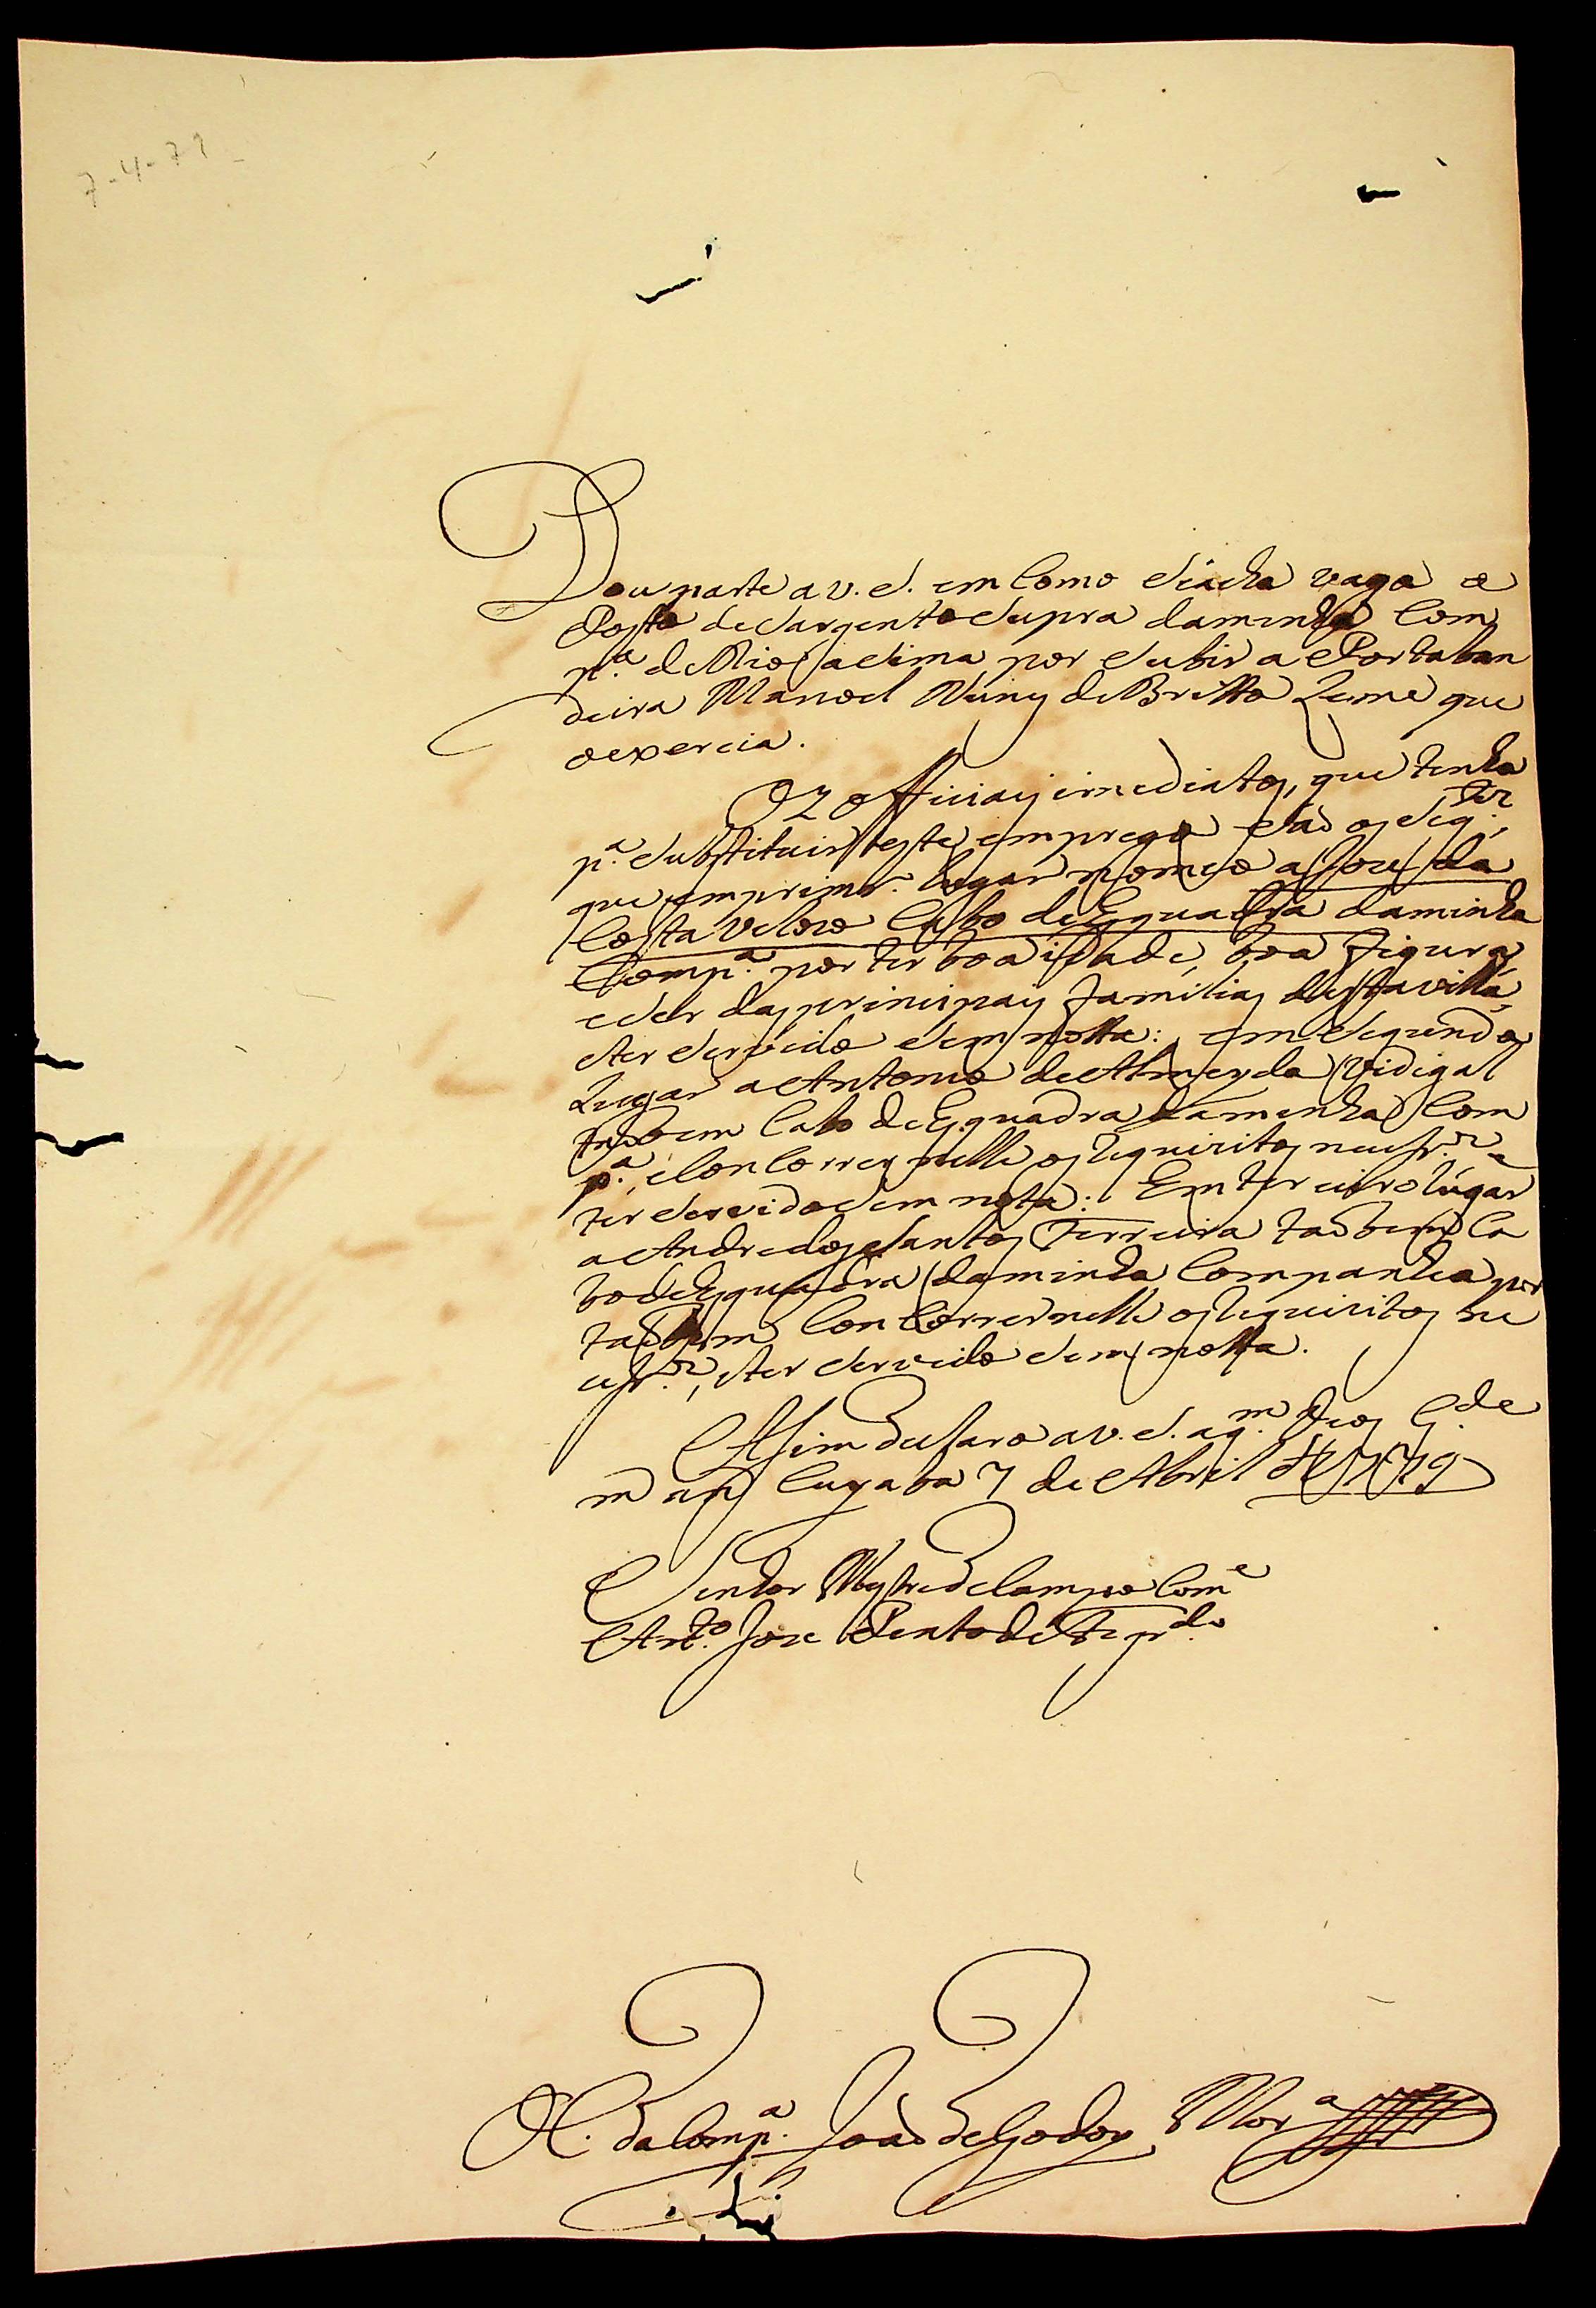 7-4-79
Dou parte a V. S. em como se acha vago o
Posto de Sargento Supra da minha Com
p.ª de Rio acima por subir a Portaban
deira Manoel Nunes de Britto Leme que
o exercia.
Oz officiaes imediatos, que tenho
p.ª substituir este emprego são os seg.tes
que em primr.º lugar nomeio a Joze da
Costa Velozo Cabo de Esquadra da minha
Comp.ª por ter boa idade, boa figura,
e ser das principaes familias desta villa,
e ter servido sem notta: em segundo
Lugar a Antonio de Almeyda Vidigal
tambem Cabo de Esquadra da minha Com
p.ª, e concorrer nelle os requizitos necessr.os e
ter servido sem nota: Em terceiro lugar
a Andre dos Santos Ferreira tãobem Ca
bo de Esquadra da minha Companhia por
tãobem concorrer nelle os requizitos ne
cessr.os, e ter servido sem notta.
Assim declaro a V. S. a q.m Deos G.de
m an Cuyaba 7 de Abril de 1779
Senhor Mestre de Campo Com.e
Ant.º Joze Pinto de Figr.do
C. da Comp.ª João de Godoy Mor.ª